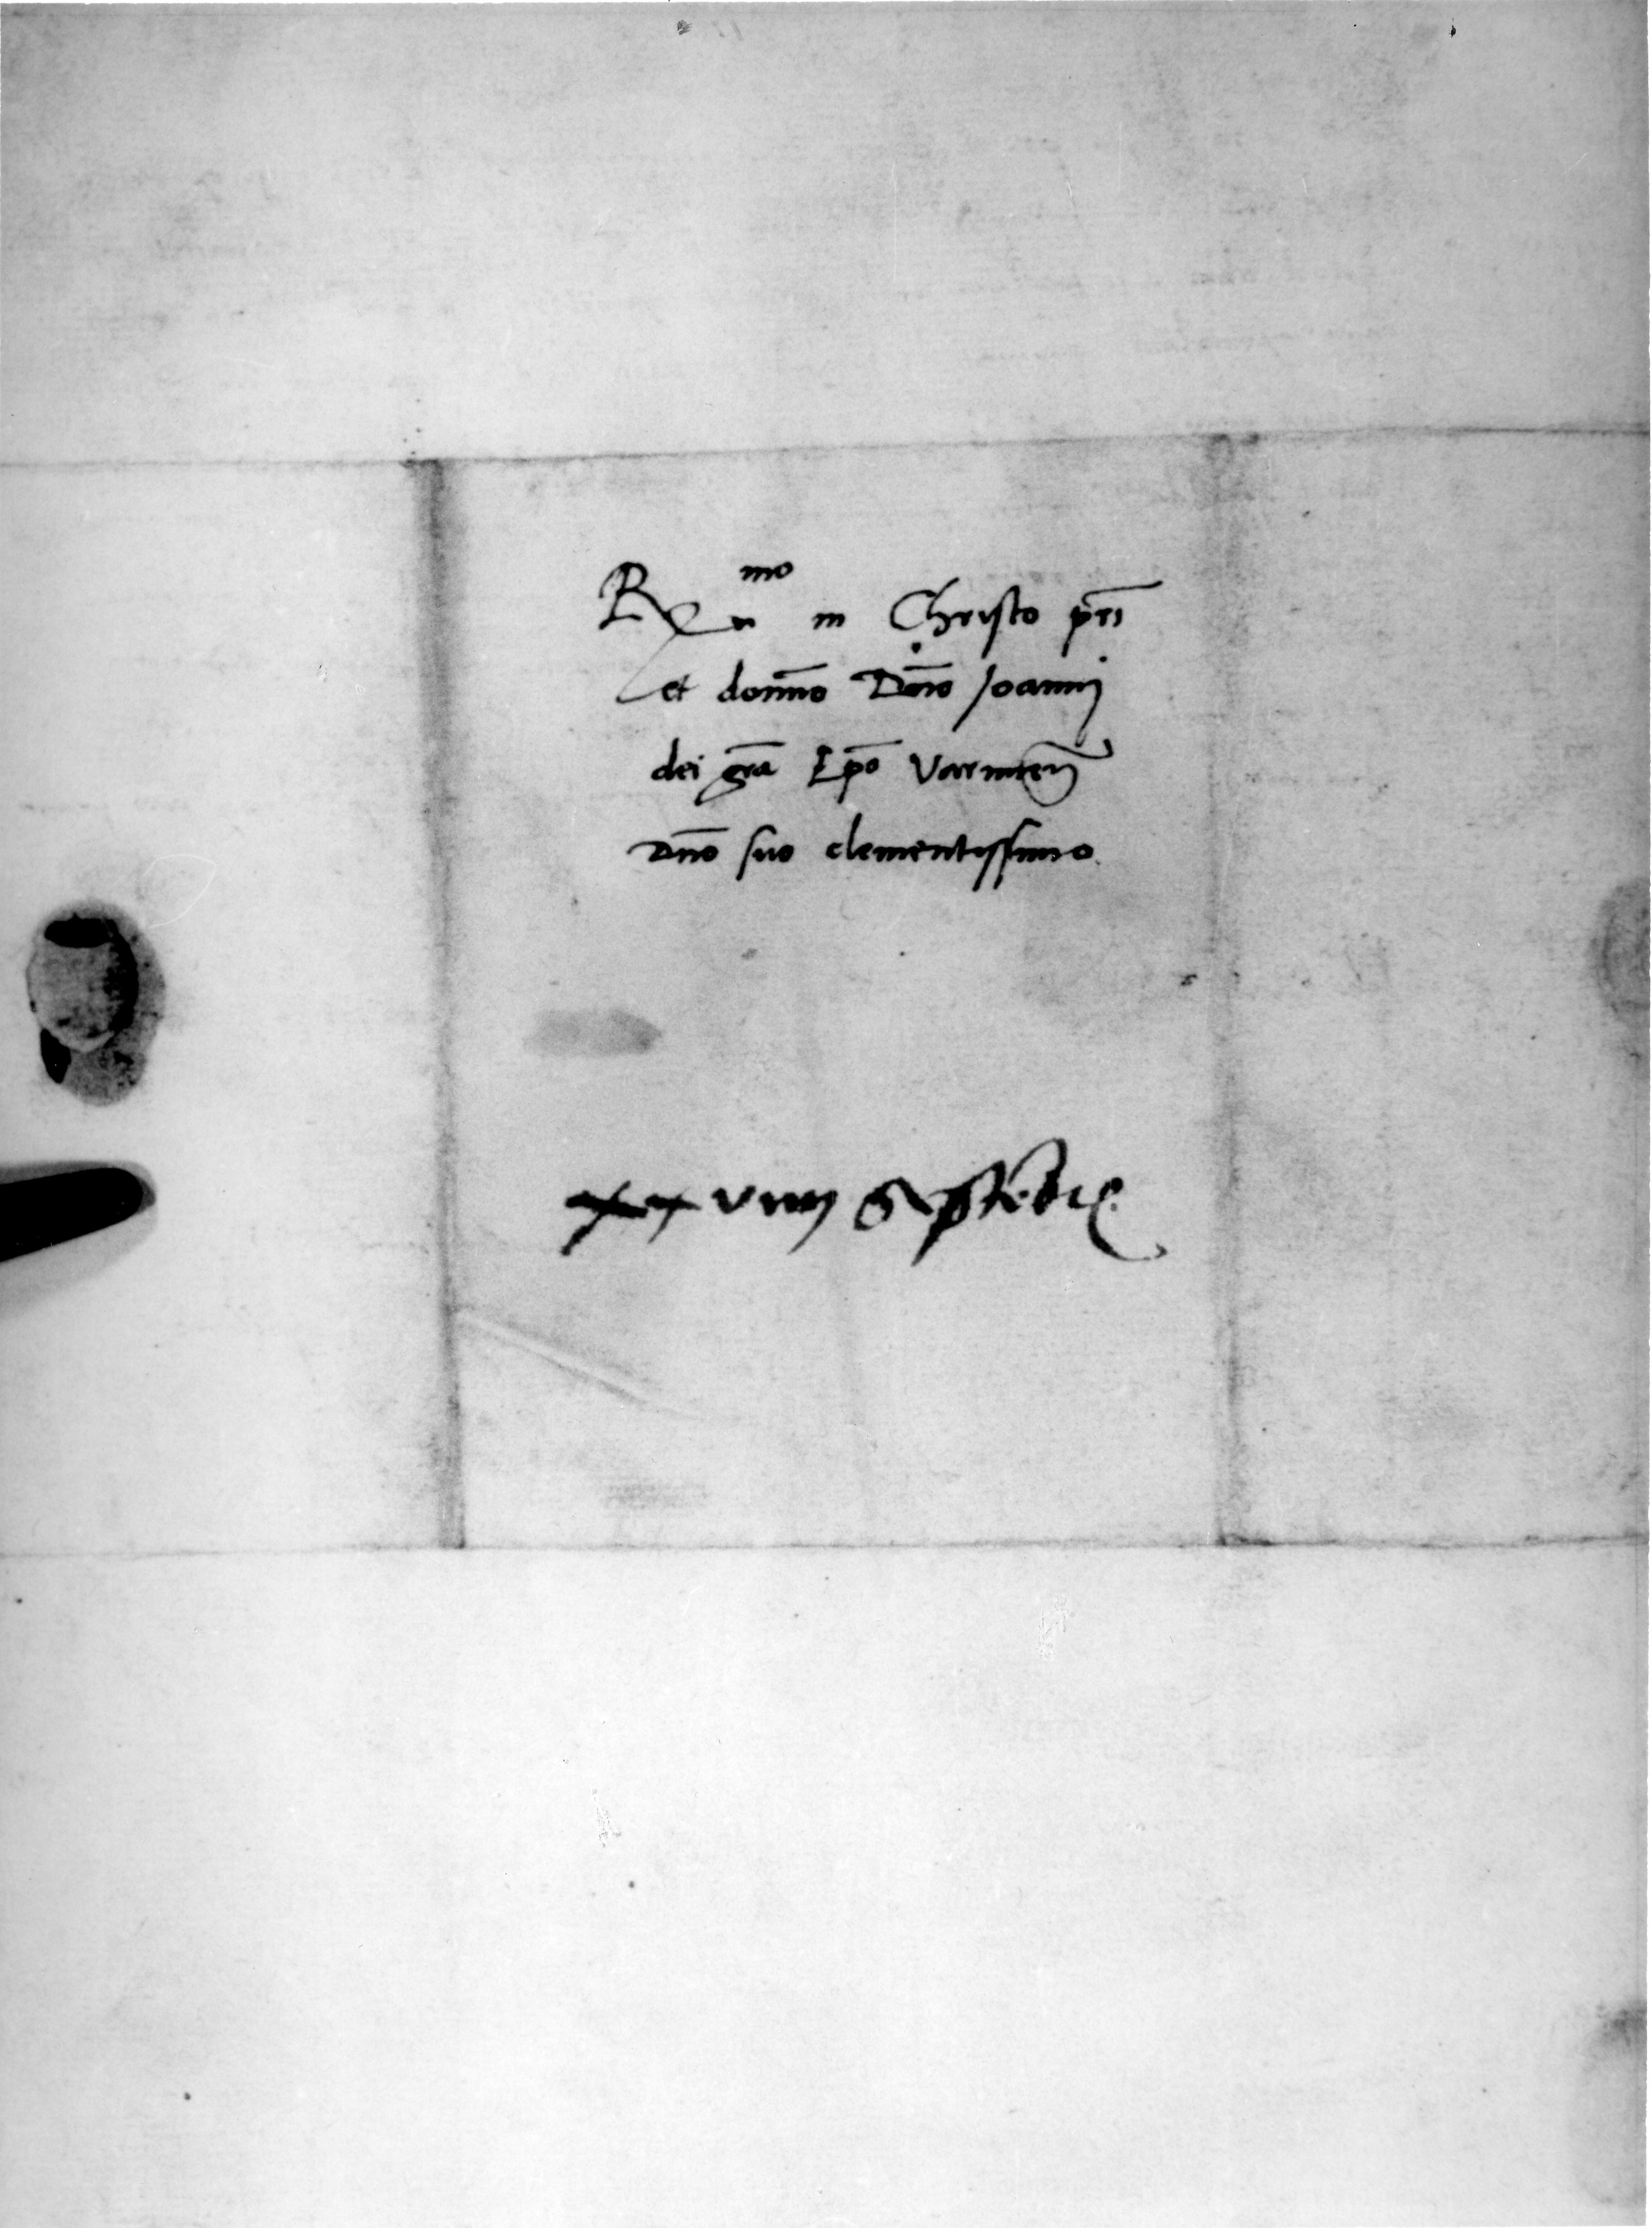 R mo in Christo pri
et domno Dno Joanni
dei gra Epo Varmien
Dno suo clementissimo
Septebris